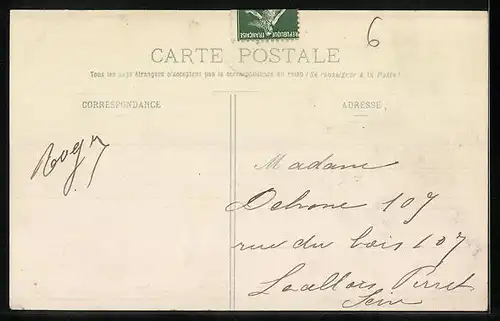 REPUBLIQUE FRANÇAISE
6
CARTE POSTALE
Tous les pays étrangers n'acceptent pas la correspondance au recto (Se renseigner à la Poste)
CORRESPONDANCE
ADRESSE
Madame
107
rue du bois 107
Levallois Perret
Seine